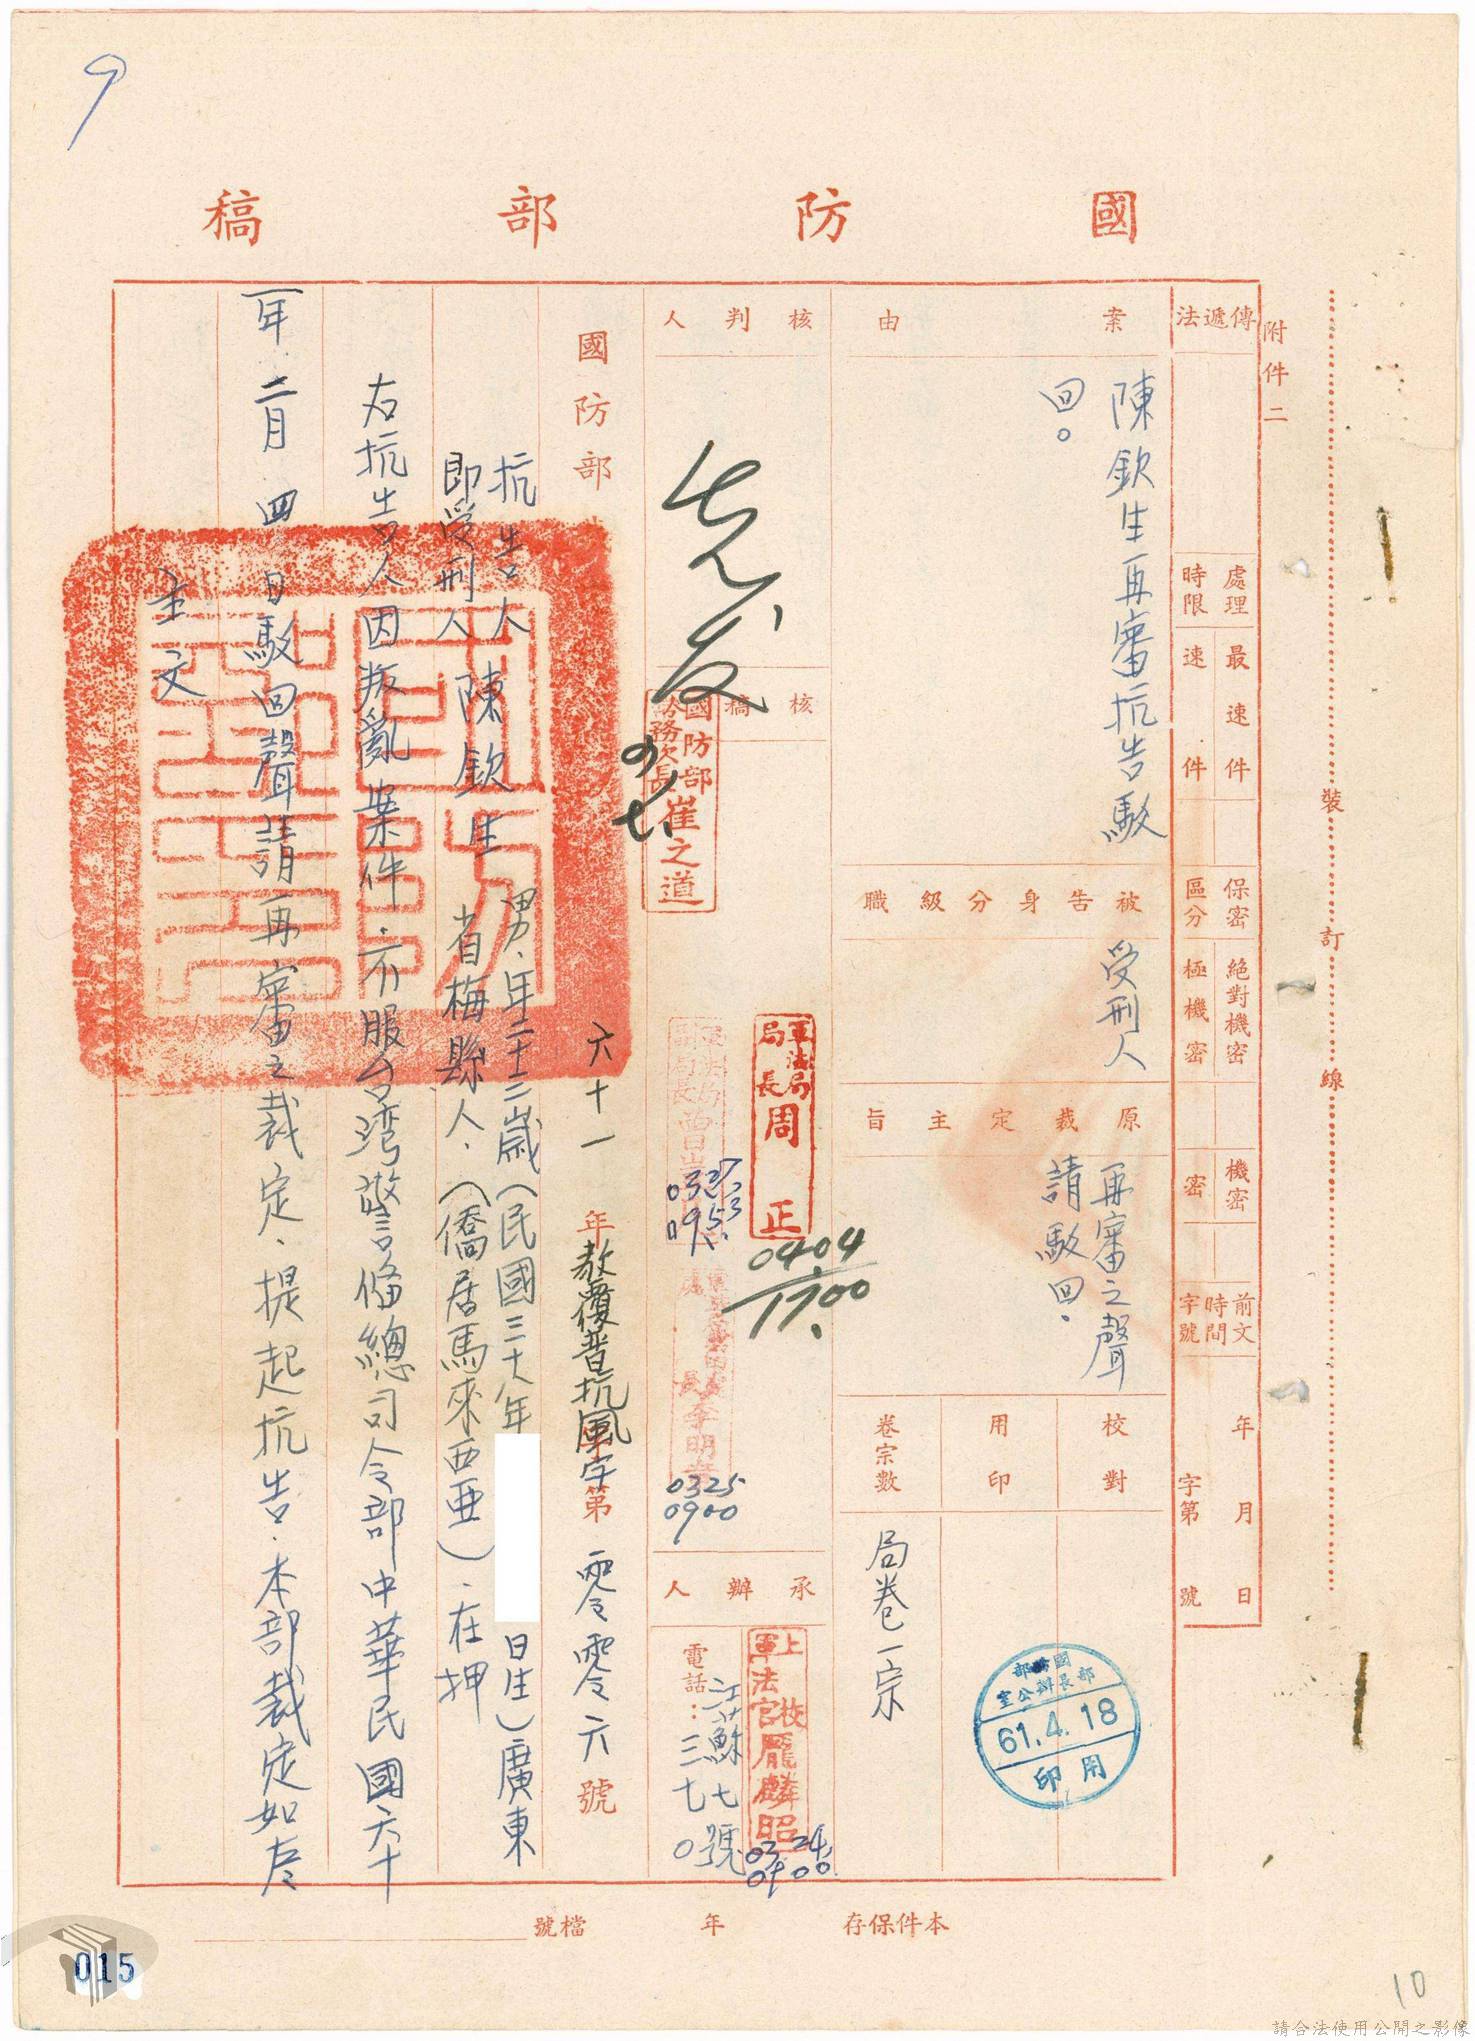 國防部稿
附件二
裝訂線
傳遞法
處理時限
最速件
速件
保密區分
絕對機密
極機密
機密
密
前文時間字號
年月日
字第號
案由
陳欽生再審抗告駁
回。
被告身分級職
受刑人
原裁定主旨
再審之聲
請駁回。
校對
用印
卷宗數
局卷一宗
國防部
部長辦公室
61.4.18
用印
核判人
核稿
國防部
常務次長
崔之道
軍法局
局長
周正
0404
1700
0325
0900
承辦人
上校
軍法官
龎麟昭
0324
0900
江蘇七號
電話：三七七〇
國防部
六十一年教覆普抗風字第零零六號
抗告人
即受刑人
陳欽生
男、年二十三歲（民國三十八年
日生）廣東
省梅縣人、（僑居馬來西亜）、在押
右抗告人因叛亂案件、不服台湾警俻總司令部中華民國六十
一年二月四日駁回聲請再審之裁定、提起抗告、本部裁定如左
主文
本件保存年
檔號
015
10
請合法使用公開之影像